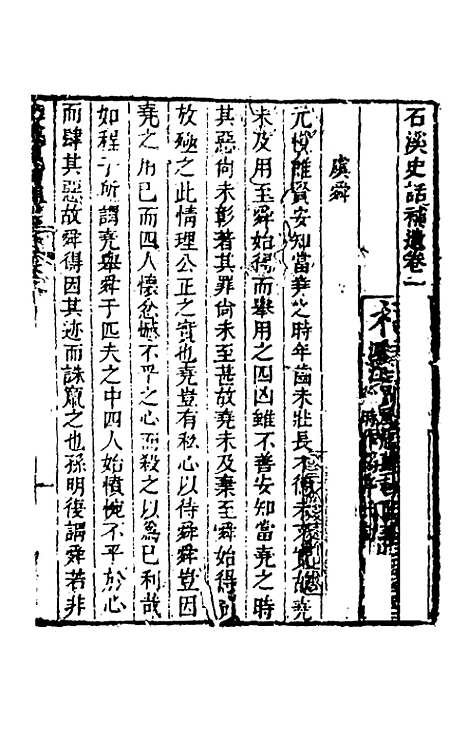 石溪史話補遺卷一
虞舜
元愷雖賢安知當堯之時年齒未壯長不
未及用至舜始得而舉用之四凶雖不善安知當堯之時
其惡尚未彰著其罪尚未至甚故堯未及棄至舜始得
放殛之此情理公正之實也堯豈有私心以待舜舜豈因
堯之用已而四人懷忿慽不平之心而殺之以為已利哉
如程子所謂堯舉舜于匹夫之中四人始憤惋不平於心
而肆其惡故舜得因其迹而誅竄之也孫明復謂舜若非